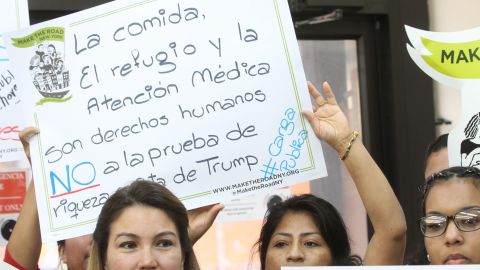 MAKE THE ROAD
NEW YORK
La comida,
El refugio y la
Atención Médica
son derechos humanos
NO a la prueba de
riqueza de Trump
#Carga
Publica
WWW.MAKETHEROADNY.ORG
@MaketheRoadNY
MAKE